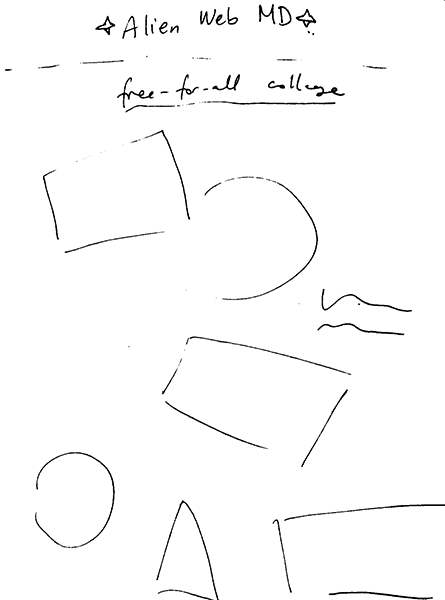 Alien Web MD
free-for-all collage